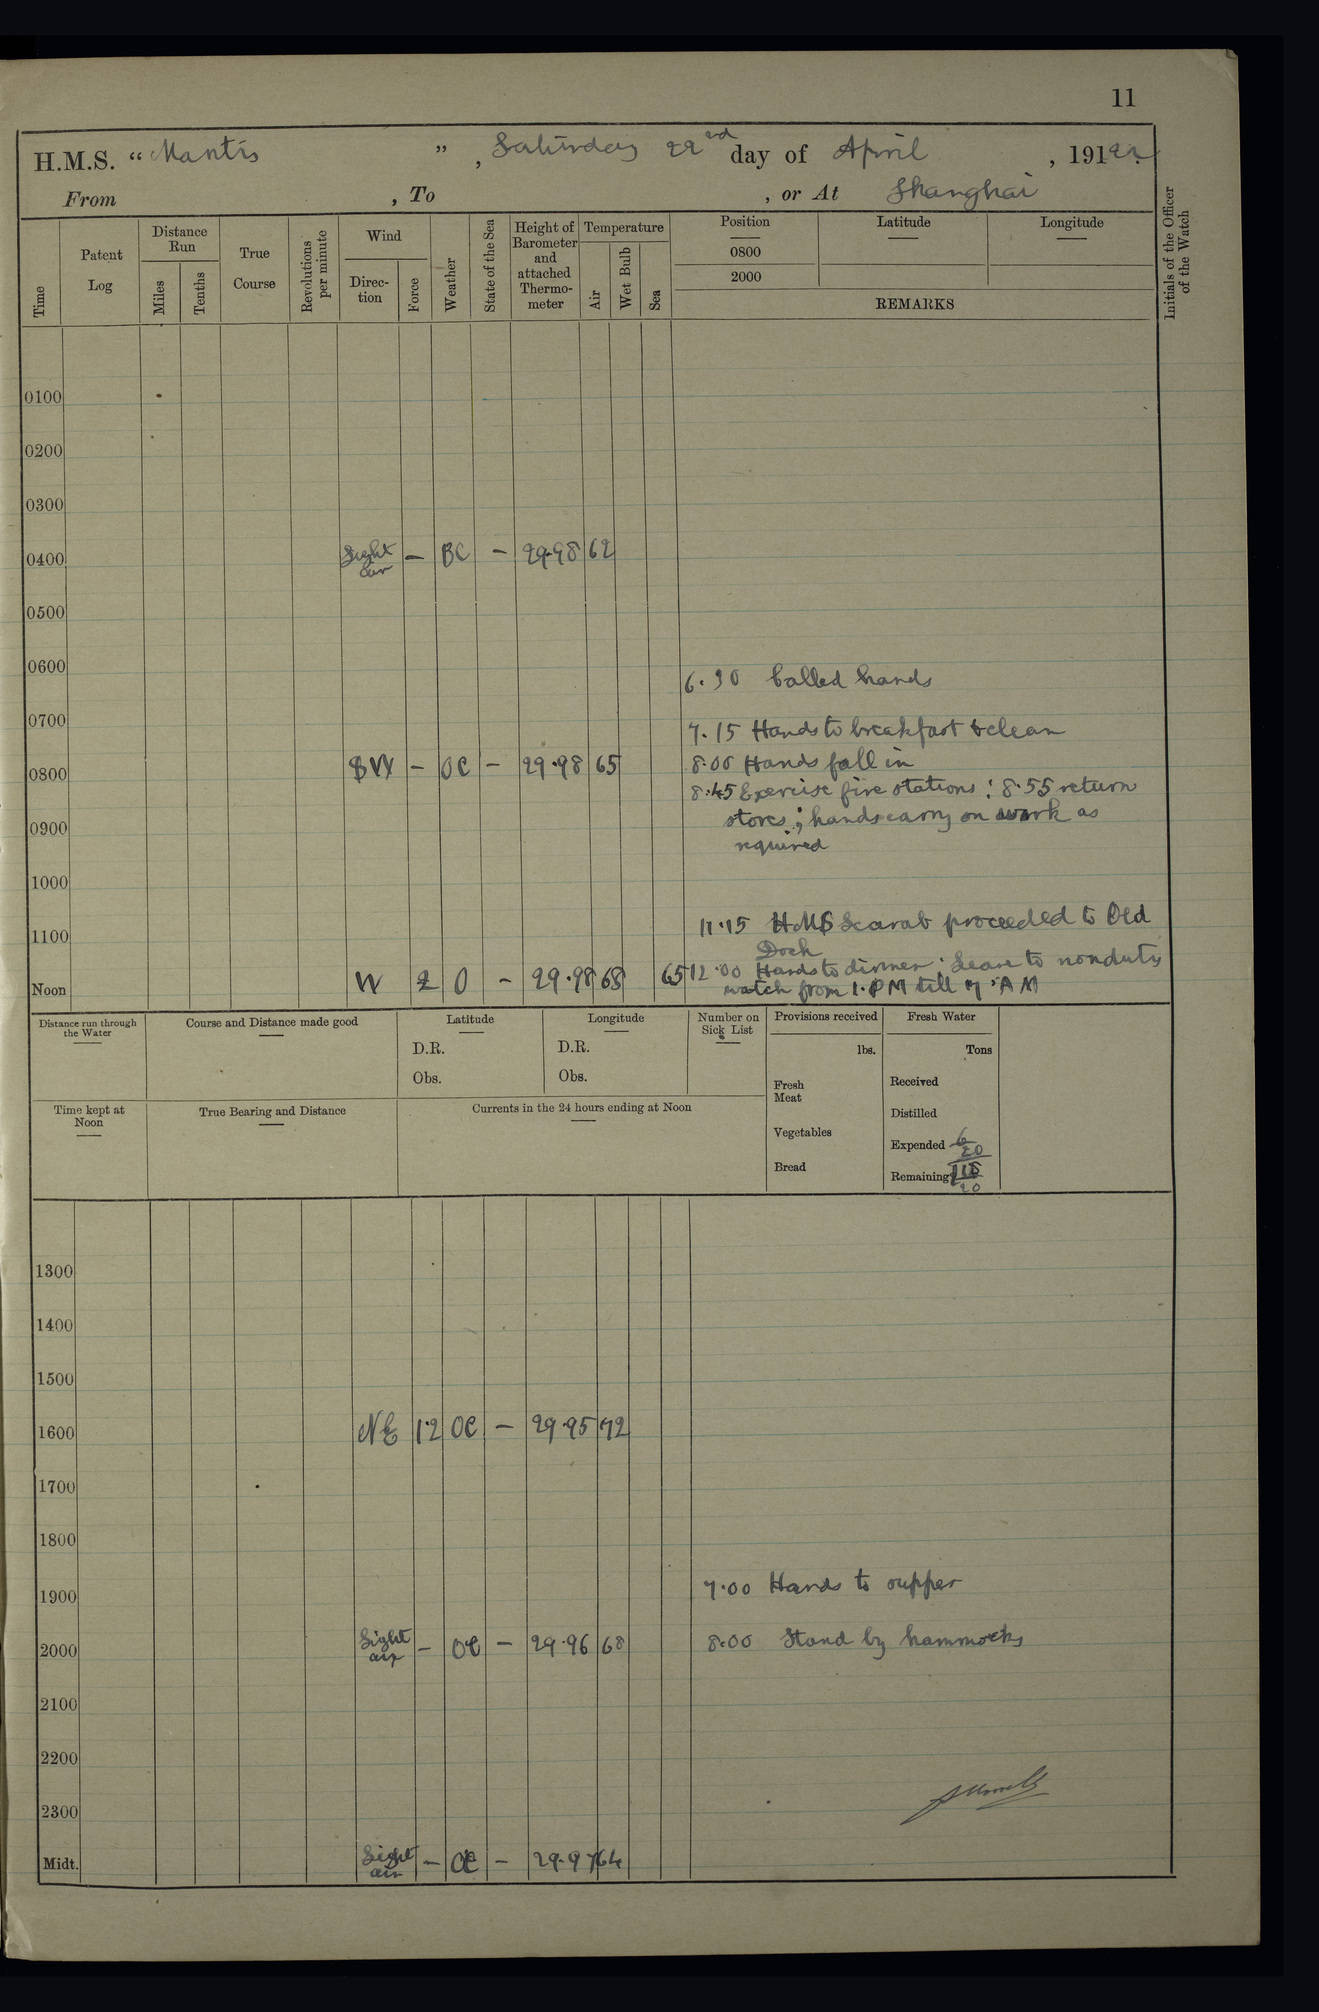 11
H.M.S. "Mantis", Saturday 22nd day of April, 1922.
From , To , or At Shanghai
Time
Patent Log
Distance Run
Miles
Tenths
True Course
Revolutions per minute
Wind
Direc-tion
Force
Weather
State of the Sea
Height of Barometer and attached Thermo-meter
Temperature
Air
Wet Bulb
Sea
Position
0800
2000
Latitude
Longitude
REMARKS
Initials of the Officer of the Watch
0100
0200
0300
0400 Light air — BC — 29.98 62
0500
0600
6.30 Called hands
0700
7.15 Hands to breakfast & clean
0800 SW — OC — 29.98 65
8.00 Hands fall in
8.45 Exercise fire stations; 8.55 return
stores; hands carry on work as
required
0900
1000
1100
11.15 HMS Scarab proceeded to Old
Dock
Noon W 2 O — 29.98 68 65
12.00 Hands to dinner. Leave to nonduty
watch from 1.PM till 7.AM
Distance run through the Water
Course and Distance made good
Latitude
D.R.
Obs.
Longitude
D.R.
Obs.
Number on Sick List
Provisions received
lbs.
Fresh Meat
Vegetables
Bread
Fresh Water
Tons
Received
Distilled
Expended 6/20
Remaining 20
Time kept at Noon
True Bearing and Distance
Currents in the 24 hours ending at Noon
1300
1400
1500
1600 NE 1.2 OC — 29.95 72
1700
1800
1900
7.00 Hands to supper
2000 Light air — OC — 29.96 68
8.00 Stand by hammocks
2100
2200
2300
Midt. Light air — OC — 29.97 64